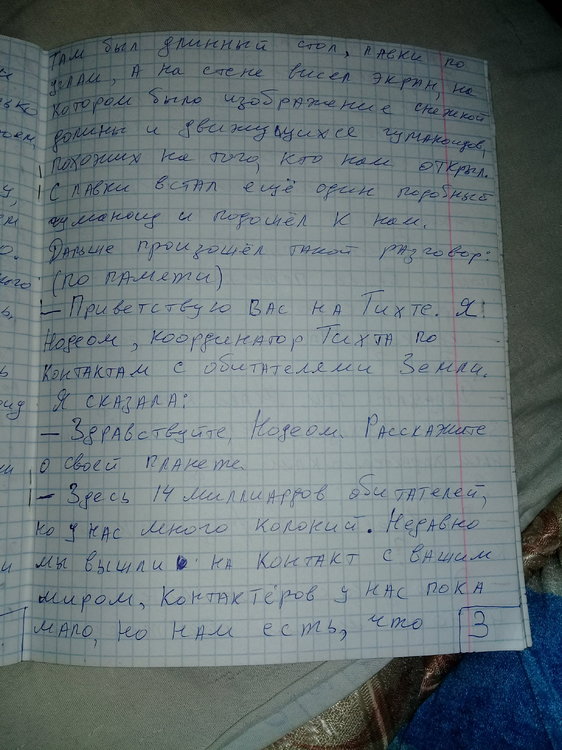 Там был длинный стол, лавки по
углам, а на стене висел экран, на
котором было изображение снежной
долины и движущихся гуманоидов,
похожих на того, кто нам открыл.
С лавки встал ещё один подобный
гуманоид и подошёл к нам.
Дальше произошёл такой разговор:
(по памяти)
— Приветствую Вас на Тихте. Я:
Нодеом, координатор Тихта по
контактам с обитателями Земли.
Я сказала:
— Здравствуйте, Нодеом. Расскажите
о своей планете.
— Здесь 14 миллиардов обитателей,
но у нас много колоний. Недавно
мы вышли на контакт с вашим
миром, контактёров у нас пока
мало, но нам есть, что
3